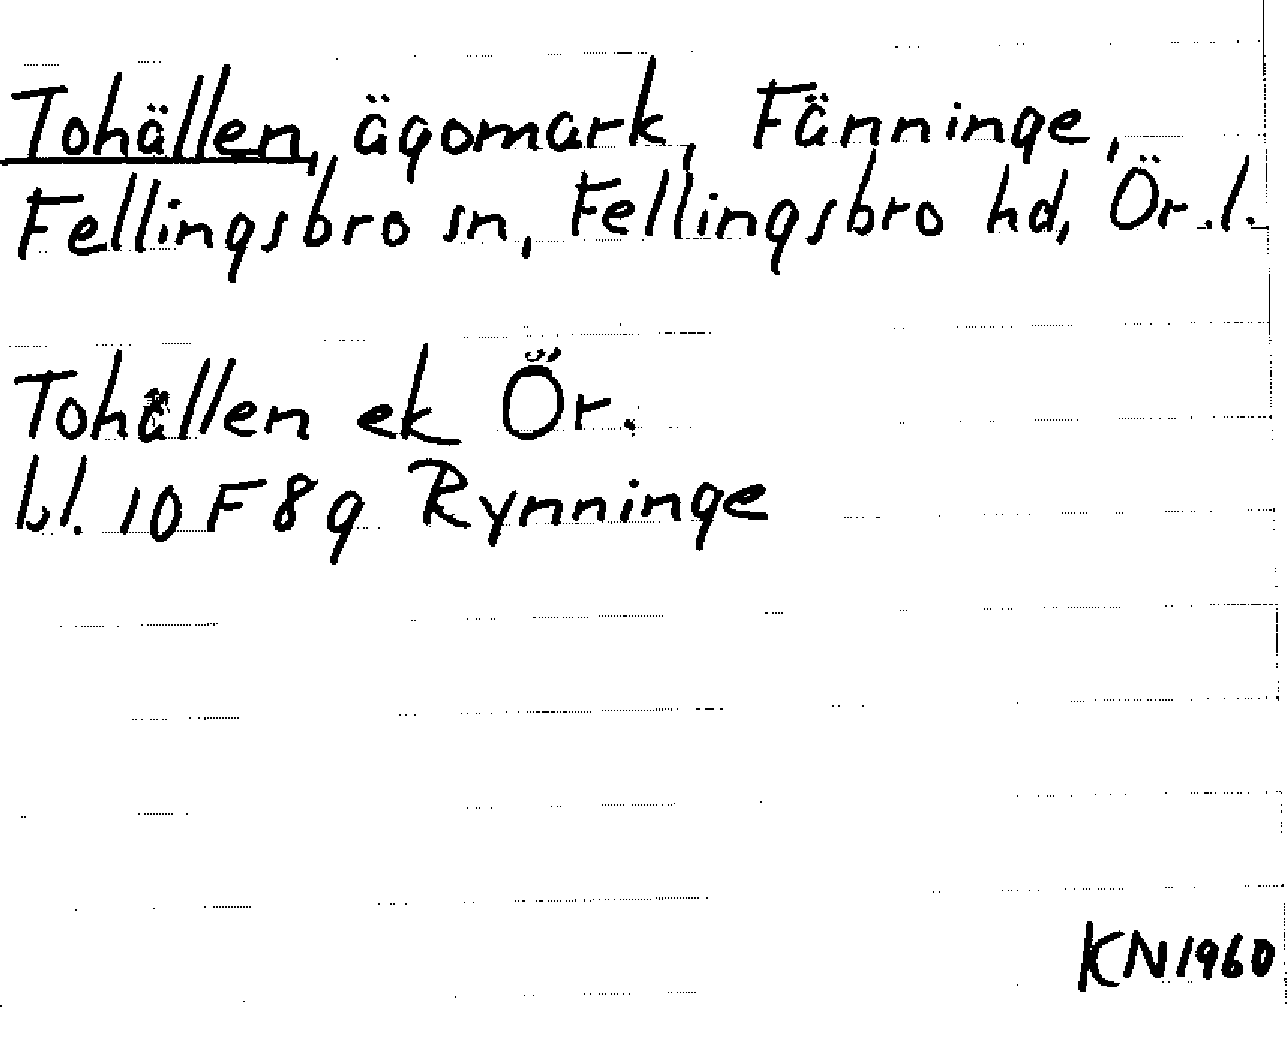 Tohällen, ägomark, Fänninge,
Fellingsbro sn, Fellingsbro hd, Ör.l.
Tohällen ek Ör.
bl. 10 F 8 g Rynninge
KN1960